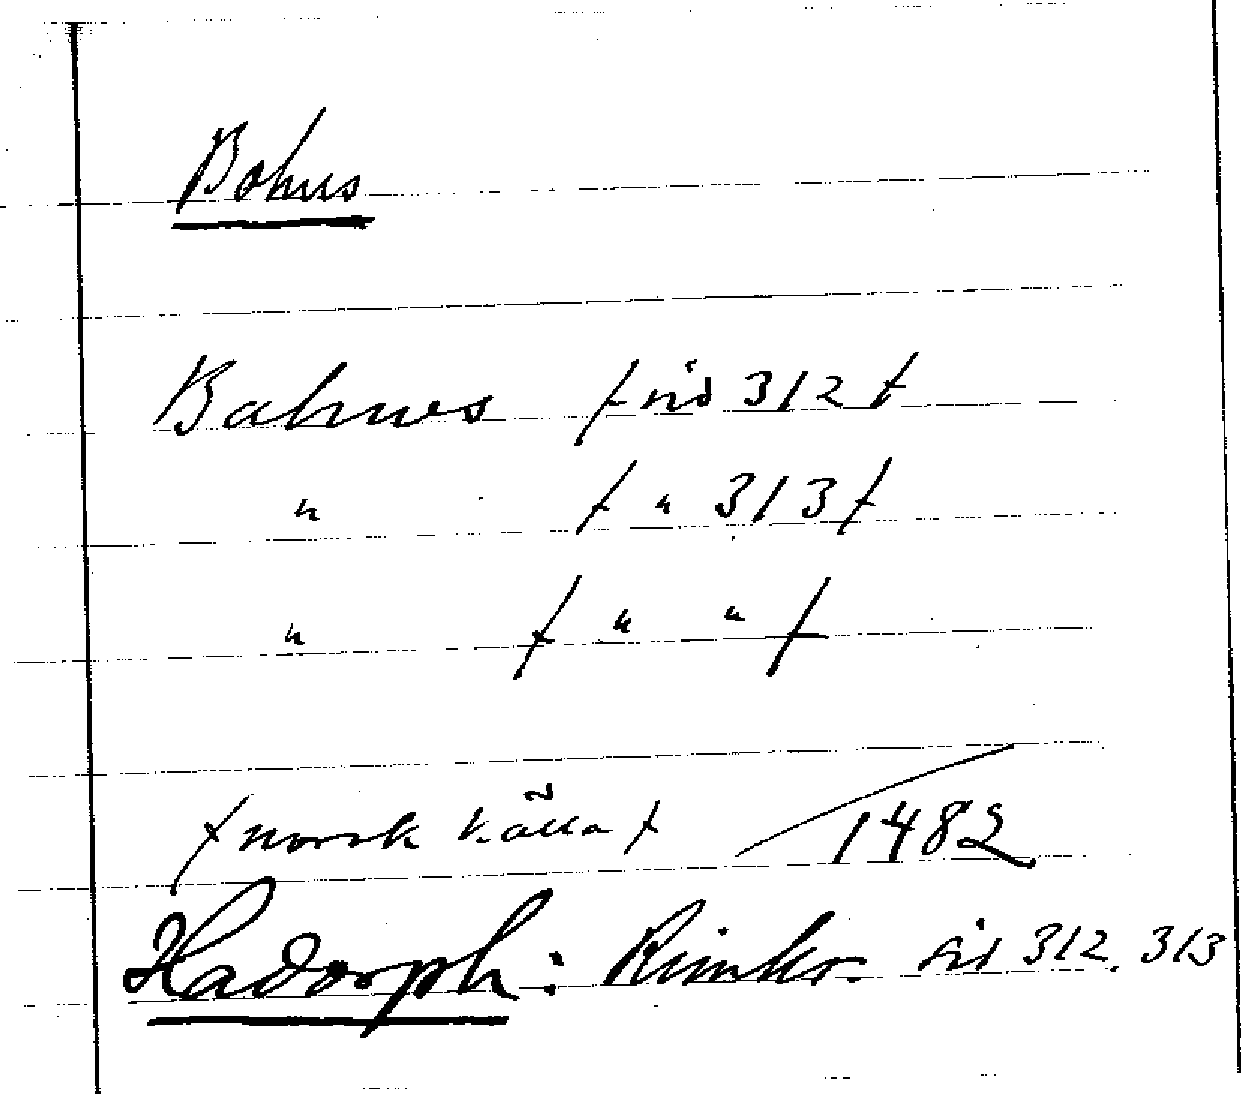 Bohus
Bahues /sid 312/
" /" 313/
" /" "/
/norsk källa/ 1482
Hadorph: Rimkr. sid 312. 313